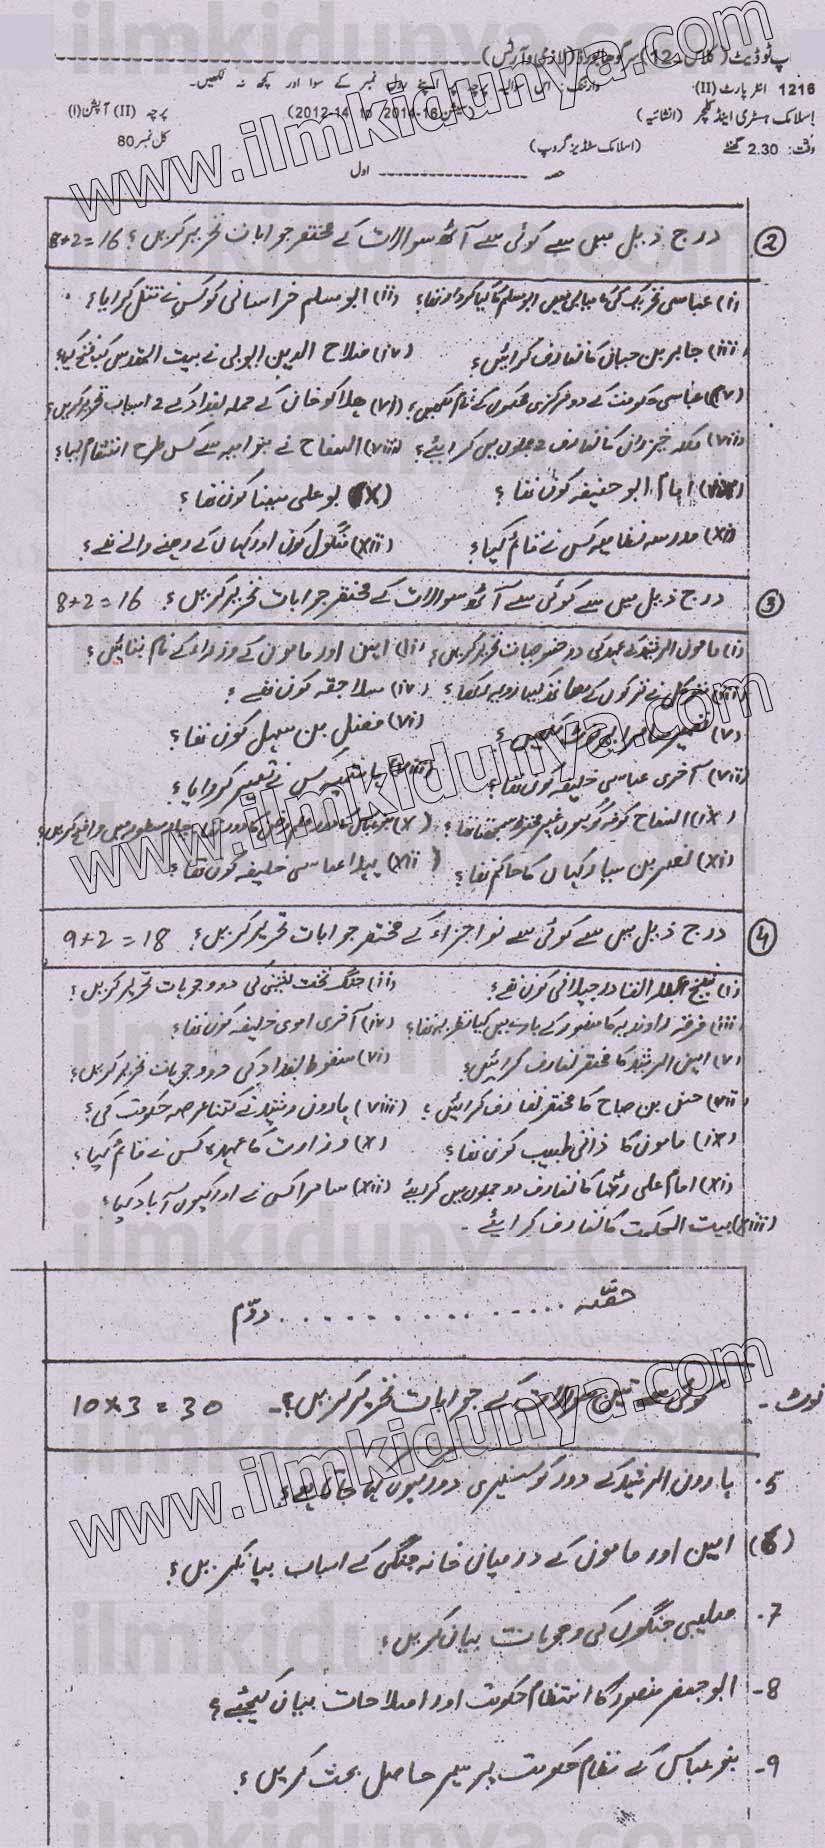 1216 انٹر پارٹ (II)
وارننگ: اس سوالیہ پرچہ پر اپنے رول نمبر کے سوا اور کچھ نہ لکھیں۔
اسلامک ہسٹری اینڈ کلچر (انشائیہ) (سیشن 16-2014 to 2012-14) پرچہ (II) آپشن (I)
وقت: 2.30 گھنٹے (اسلامک سٹڈیز گروپ) کل نمبر 80
حصہ ------------------ اول
② درج ذیل میں سے کوئی سے آٹھ سوالات کے مختصر جوابات تحریر کریں؟ 8+2=16
(i) عباسی تحریک کی کامیابی میں ابو مسلم کا کیا کردار تھا؟ (ii) ابو مسلم خراسانی کو کس نے قتل کرایا؟
(iii) جابر بن حیان کا تعارف کرائیں؟ (iv) صلاح الدین ایوبی نے بیت المقدس کیسے فتح کیا؟
(v) عباسی حکومت کے دو مرکزی محکموں کے نام لکھیں؟ (vi) ہلاکو خان کے حملہ بغداد کے 2 اسباب تحریر کریں؟
(vii) ملکہ خیزراں کا تعارف 2 جملوں میں کرایئے؟ (viii) السفاح نے بنو امیہ سے کس طرح انتقام لیا؟
(ix) امام ابو حنیفہ کون تھا؟ (x) بو علی سینا کون تھا؟
(xi) مدرسہ نظامیہ کس نے قائم کیا؟ (xii) منگول کون اور کہاں کے رہنے والے تھے؟
③ درج ذیل میں سے کوئی سے آٹھ سوالات کے مختصر جوابات تحریر کریں؟ 8+2=16
(i) مامون الرشید کے عہد کی دو خصوصیات تحریر کریں؟ (ii) امین اور مامون کے وزراء کے نام بتائیں؟
(iii) متوکل نے ترکوں کے ساتھ کیسا رویہ رکھا؟ (iv) سلاجقہ کون تھے؟
(v) (vi) فضل بن سہل کون تھا؟
(vii) آخری عباسی خلیفہ کون تھا؟ (viii) کس نے تعمیر کروایا؟
(ix) السفاح کوفہ کو کیوں غیر محفوظ سمجھتا تھا؟ (x)
(xi) نصر بن سیار کہاں کا حاکم تھا؟ (xii) پہلا عباسی خلیفہ کون تھا؟
④ درج ذیل میں سے کوئی سے نو اجزاء کے مختصر جوابات تحریر کریں؟ 9+2=18
(i) شیخ عبدالقادر جیلانی کون تھے؟ (ii) جنگ تخت نشینی کی دو وجوہات تحریر کریں؟
(iii) فرقہ راوندیہ کا منصور کے بارے میں کیا نظریہ تھا؟ (iv) آخری اموی خلیفہ کون تھا؟
(v) امین الرشید کا مختصر تعارف کرائیں؟ (vi) سقوط بغداد کی دو وجوہات تحریر کریں؟
(vii) حسن بن صباح کا مختصر تعارف کرائیں؟ (viii) ہارون رشید نے کتنا عرصہ حکومت کی؟
(ix) مامون کا ذاتی طبیب کون تھا؟ (x) وزارت کا عہدہ کس نے قائم کیا؟
(xi) امام علی رضا کا تعارف دو جملوں میں کرایئے (xii) سامرا کس نے اور کیوں آباد کیا؟
(xiii) بیت الحکمت کا تعارف کرایئے۔
حصّہ ............... دوّم
نوٹ۔ کوئی سے تین سوالات کے جوابات تحریر کریں؟ 10×3=30
5. ہارون الرشید کے دور کو سنہری دور کیوں کہا جاتا ہے؟
(6) امین اور مامون کے درمیان خانہ جنگی کے اسباب بیان کریں؟
7. صلیبی جنگوں کی وجوہات بیان کریں؟
8- ابو جعفر منصور کا انتظام حکومت اور اصلاحات بیان کیجئے؟
9- بنو عباس کے نظام حکومت پر سیر حاصل بحث کریں؟
www.ilmkidunya.com
www.ilmkidunya.com
www.ilmkidunya.com
ilmkidunya.com